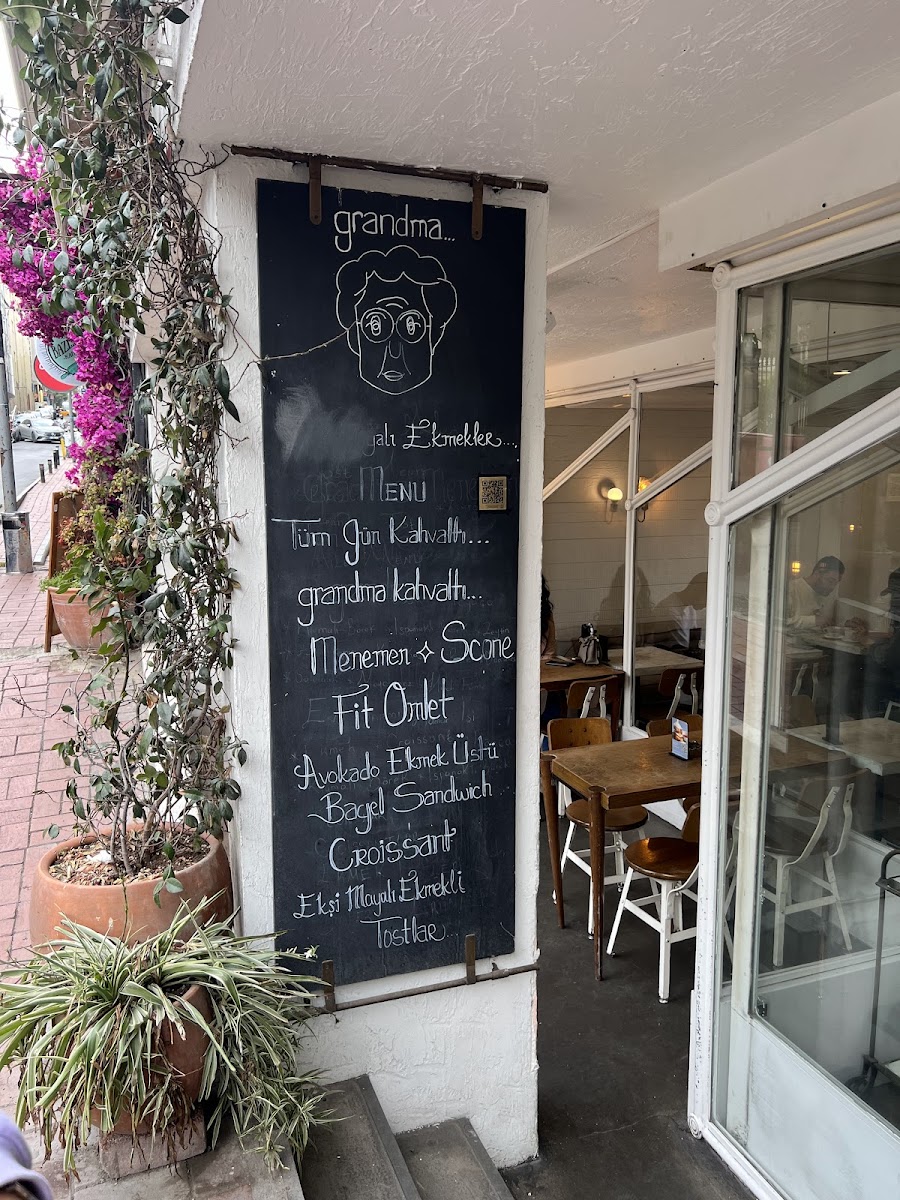 grandma...
yalı Ekmekler...
MENU
Tüm Gün Kahvaltı...
grandma kahvaltı...
Menemen ✧ Scone
Fit Omlet
Avokado Ekmek Üstü
Bagel Sandwich
Croissant
Ekşi Mayalı Ekmekli
Tostlar...